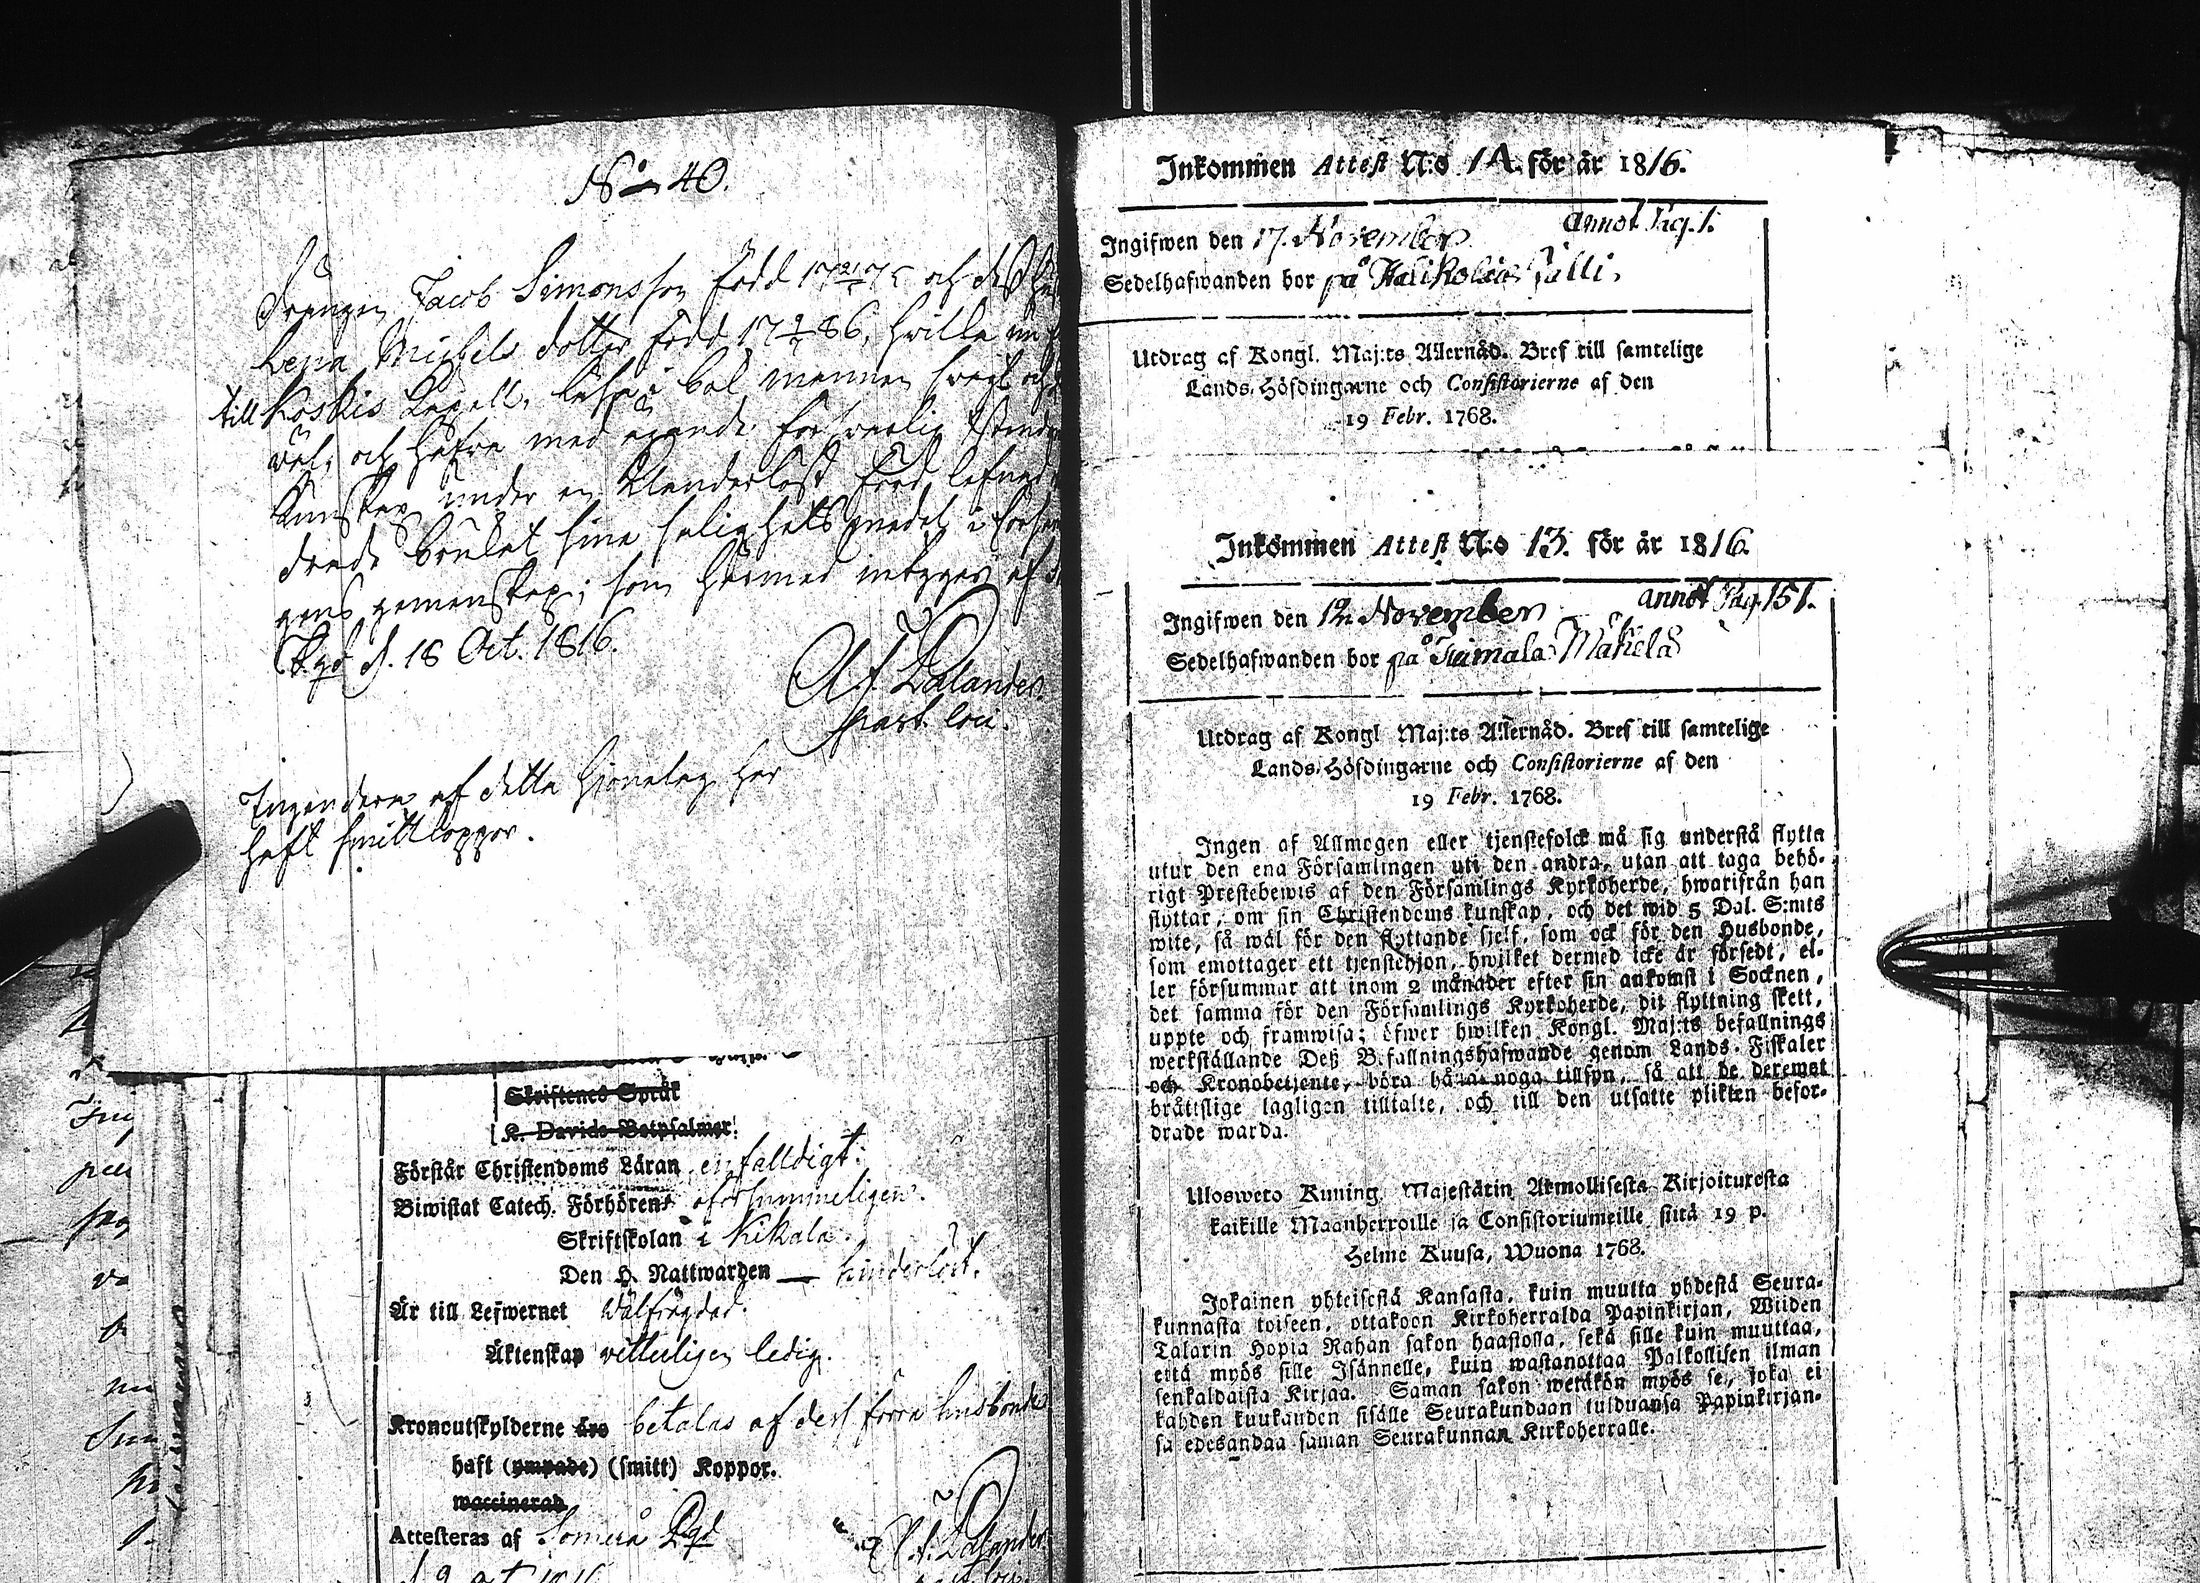 No 40.
Drengen Jacob Simonsson född 17 och dess
Lena Michels dotter född 17 2/7 86, hvilka nu
till Koskis Capell, läsa i bok mannen svagt och
väl, och hafva med ägande försvarlig Christendoms
kunskap under en klanderlöst förd lefnad
brukat sina salighets medel i försam
gens gemenskap; som härmed intygas af
Pgd d. 18 Oct. 1816.
A. f. Dalander
past. loci.
Ingendera af detta Hjonelag har
haft smittkoppor.
Skriftenes Språk
K. Davids Botpsalmer.
Förstår Christendoms Läran enfalldigt.
Biwistat Catech. Förhören oförsummeligen.
Skriftskolan i Kikala.
Den H. Nattwarden — hinderlöst.
Är till Lefwernet wälfrägdad.
Äktenskap vitterligen ledig.
Kronoutskylderne äro betalas af dess förra husbonde
haft (ympade) (smitt) Koppor.
waccinerad
Attesteras af Somero Pgd
A. f. Dalander
Inkommen Attest N:o 14. för år 1816.
annot Pag. 1.
Ingifwen den 17. November
Sedelhafwanden bor på Halikola Jälli.
Utdrag af Kongl. Maj:ts Allernåd. Bref till samtelige
Lands-Höfdingarne och Consistorierne af den
19 Febr. 1768.
Inkommen Attest N:o 13. för år 1816.
annot Pag. 151.
Ingifwen den 12 November
Sedelhafwanden bor på Tuimala Mäkelä
Utdrag af Kongl Maj:ts Allernåd. Bref till samtelige
Lands-Höfdingarne och Consistorierne af den
19 Febr. 1768.
Ingen af Allmogen eller tjenstefolck må sig understå flytta
utur den ena Församlingen uti den andra, utan att taga behö-
rigt Prestebewis af den Församlings Kyrkoherde, hwarifrån han
flyttar, om sin Christendoms kunskap, och det wid 5 Dal. S:mts
wite, så wäl för den flyttande sjelf, som ock för den Husbonde,
som emottager ett tjenstehjon, hwilket dermed icke är försedt, el-
ler försummar att inom 2 månader efter sin ankomst i Socknen,
det samma för den Församlings Kyrkoherde, dit flyttning skett,
uppte och framwisa; öfwer hwilken Kongl. Maj:ts befallnings
werkställande Deß Befallningshafwande genom Lands-Fiskaler
och Kronobetjente, böra hålla noga tillsyn, så att de deremot
bråttslige lagligen tilltalte, och till den utsatte plikten befor-
drade warda.
Ulosweto Kuning. Majestätin Armollisesta Kirjoituresta
kaikille Maanherroille ja Consistoriumeille siitä 19 p.
Helme Kuusa, Wuona 1768.
Jokainen yhteisestä Kansasta, kuin muutta yhdestä Seura-
kunnasta toiseen, ottakoon Kirkoherralda Papinkirjan, Wiiden
Talarin Hopia Rahan sakon haastolla, sekä sille kuin muuttaa,
että myös sille Isännelle, kuin wastanottaa Palkollisen ilman
senkaldaista Kirjaa. Saman sakon wetäkön myös se, joka ei
kahden kuukauden sisälle Seurakundaan tulduansa Papinkirjan-
sa edesandaa saman Seurakunnan Kirkoherralle.